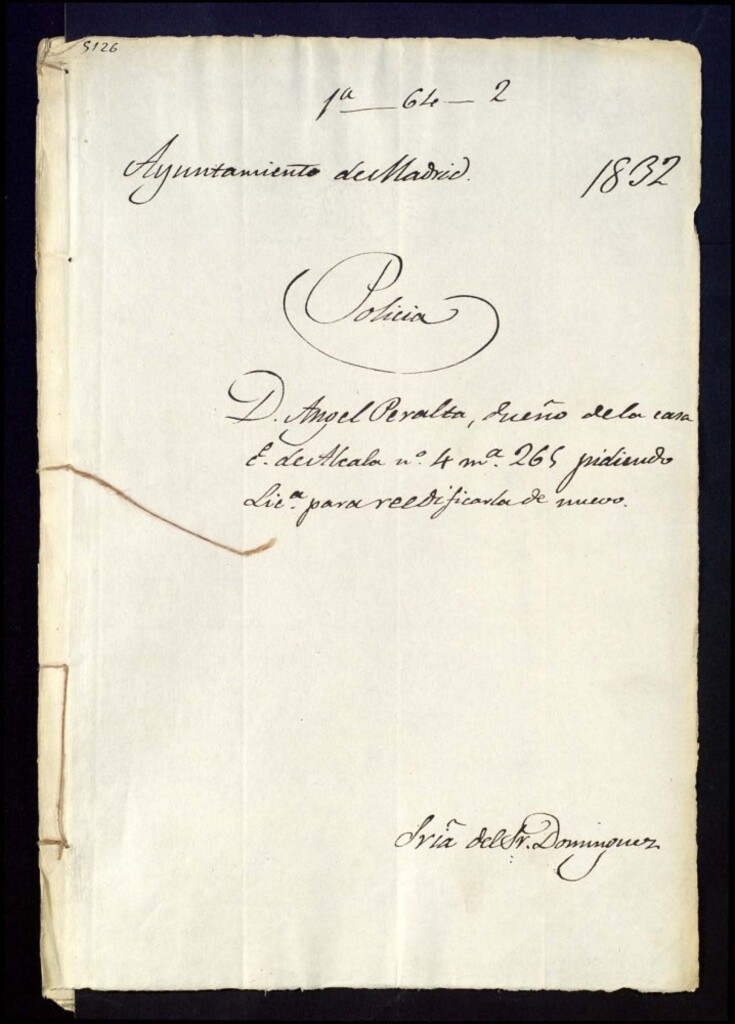 5126
1ª — 64 — 2
Ayuntamiento de Madrid. 1832
Policia
D. Angel Peralta, dueño de la casa
C. de Alcala nº. 4 mª. 265 pidiendo
Licª. para reedificarla de nuevo.
Sriã del Sr. Dominguez